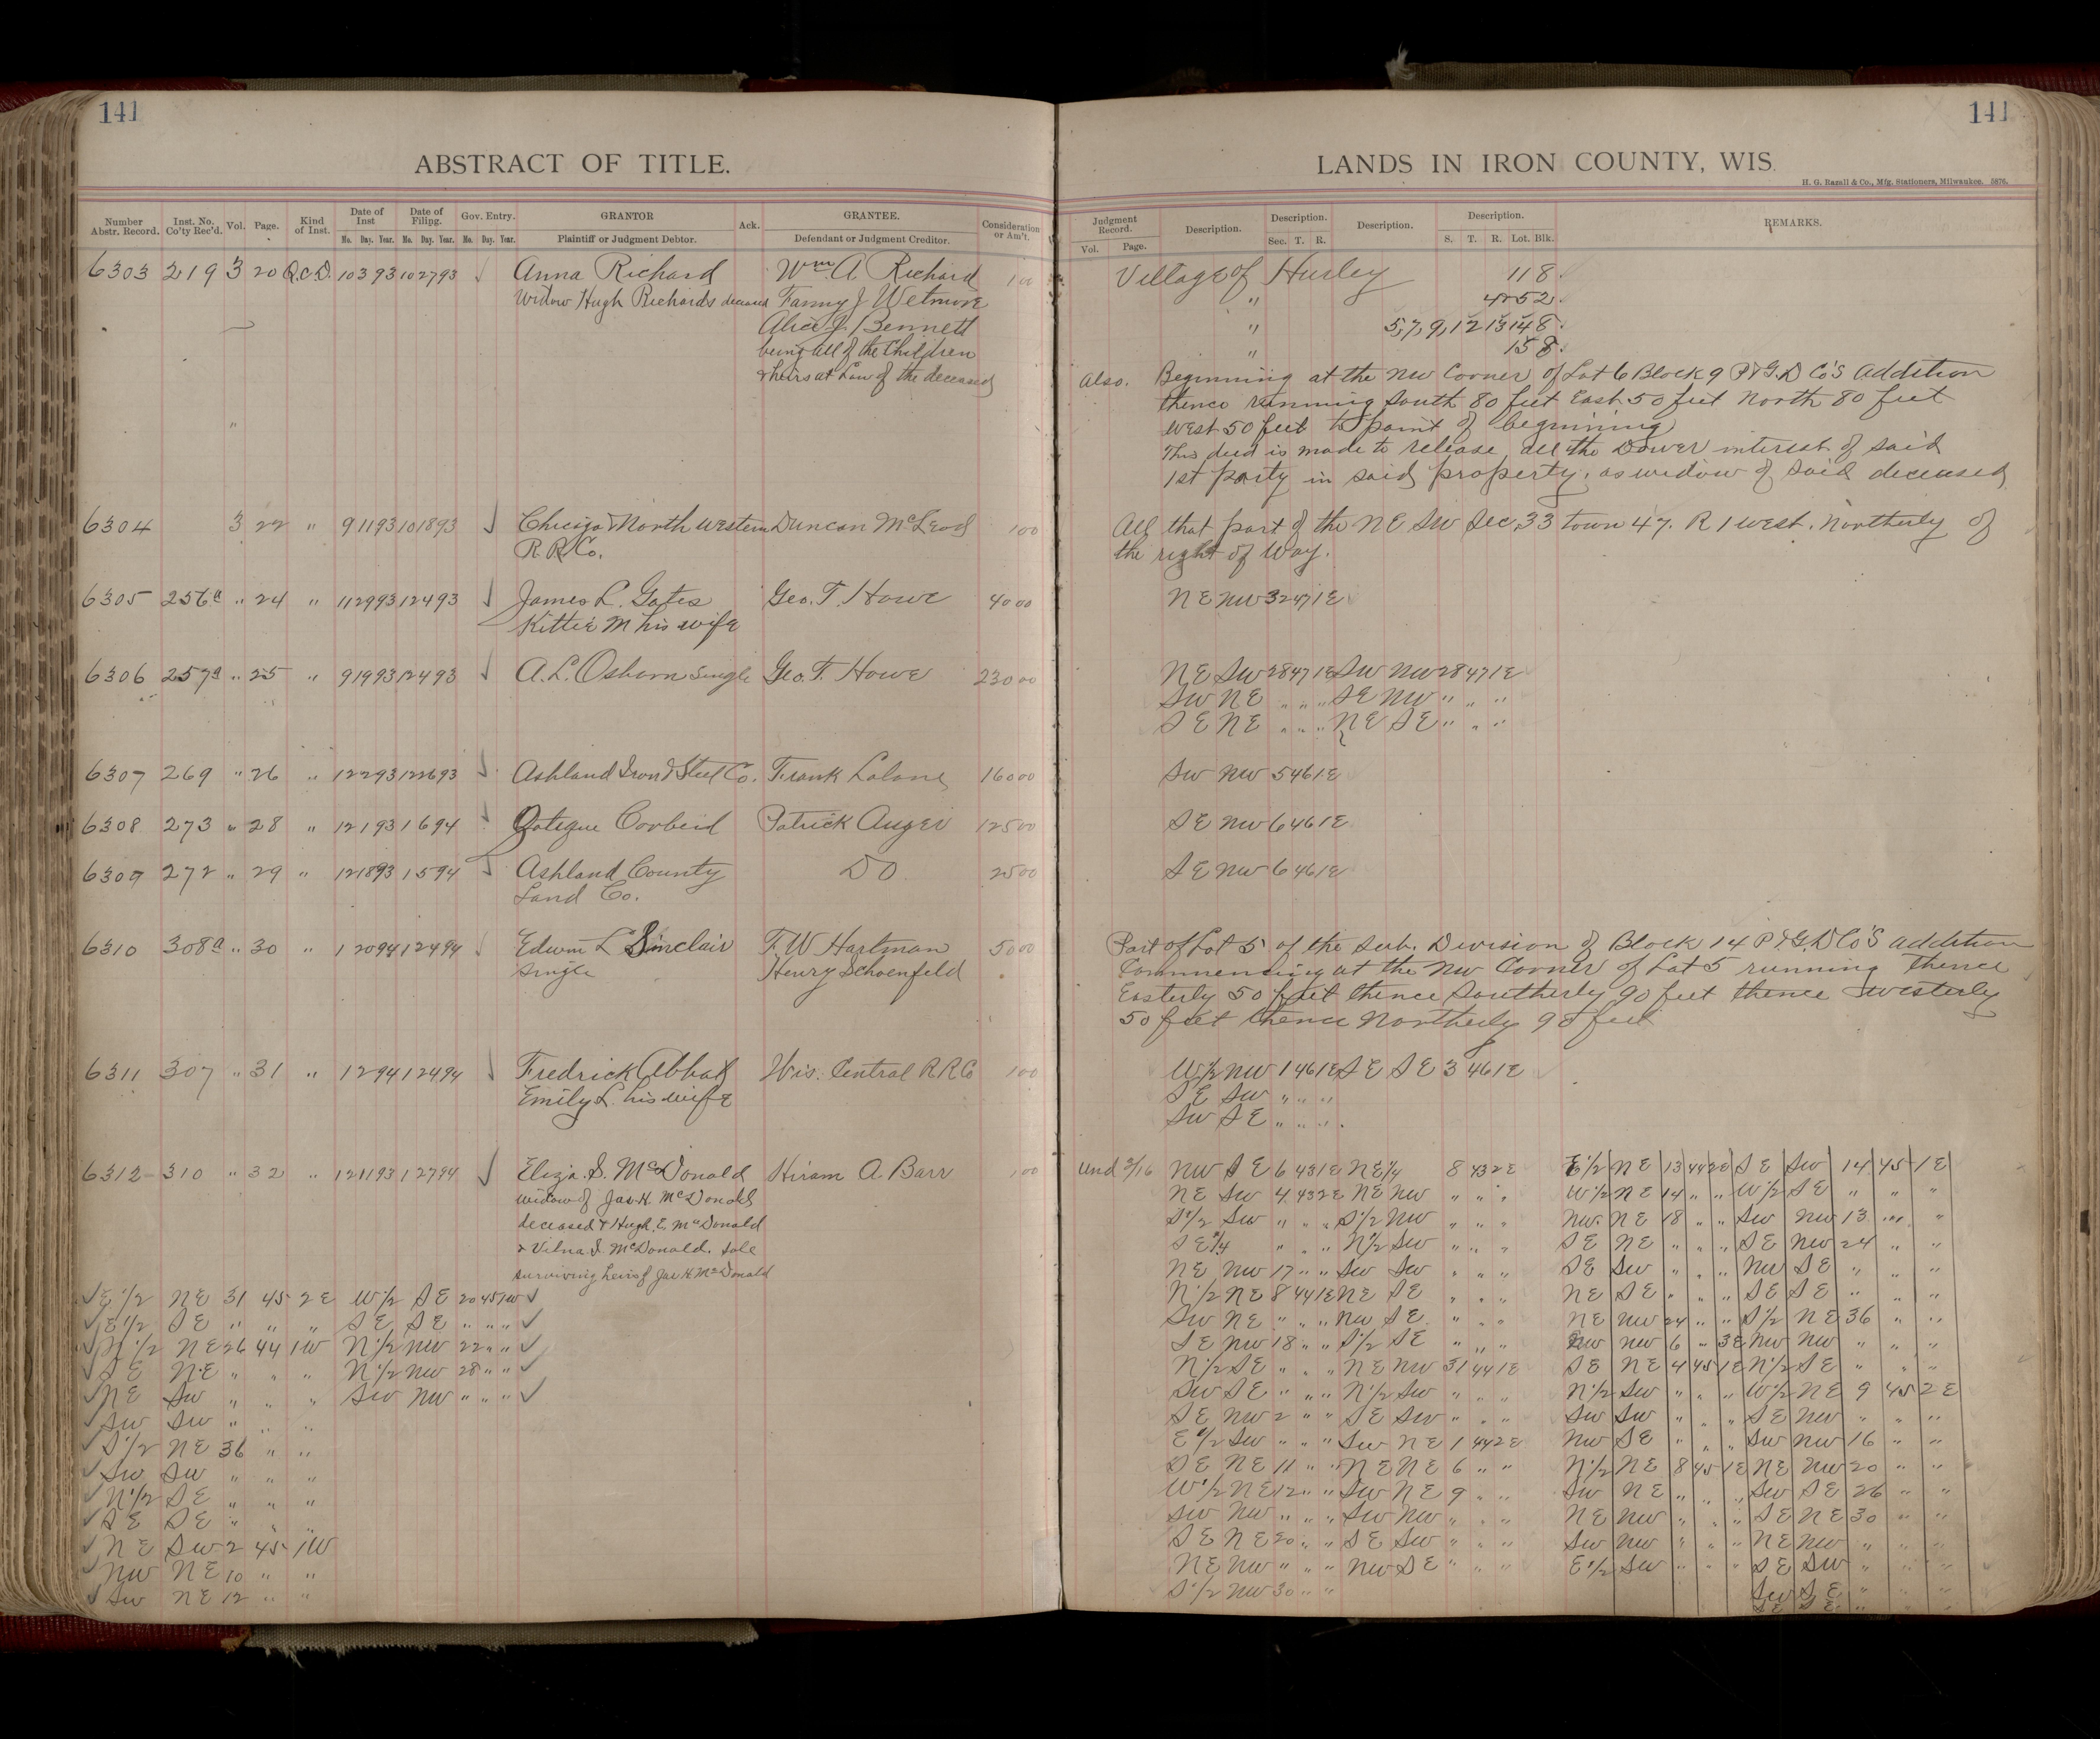 141
141
ABSTRACT OF TITLE.
LANDS IN IRON COUNTY, WIS.
H. G. Razall & Co., Mfg. Stationers, Milwaukee. 5876.
Number Abstr. Record. Inst. No. Co'ty Rec'd. Vol. Page. Kind of Inst. Date of Inst Mo. Day. Year. Date of Filing. Mo. Day. Year. Gov. Entry. Mo. Day. Year. GRANTOR Plaintiff or Judgment Debtor. Ack. GRANTEE. Defendant or Judgment Creditor. Consideration or Am't.
Judgment Record. Vol. Page. Description. Description. Sec. T. R. Description. Description. S. T. R. Lot. Blk. REMARKS.
6303 219 3 20 Q.C.D. 10 3 93 10 27 93 Anna Richard Wm A Richard 1 00 Village of Hurley 11 8.
Widow Hugh Richards deceased Fanny J Wetmore " 4 & 5 2.
Alice J. Bennett " 5, 7, 9, 12 13 14 8.
being all of the Children " 15 8.
& heirs at Law of the deceased
Also. Beginning at the NW Corner of Lot 6 Block 9 P & G. D Co's Addition
thence running South 80 feet East 50 feet North 80 feet
West 50 feet to point of beginning
This deed is made to release all the Dower interest of said
1st party in said property, as widow of said deceased
6304 3 22 " 9 11 93 10 18 93 Chicago & North Western Duncan McLeod 1 00 All that part of the NE SW Sec. 33 town 47. R 1 West. Northerly of
R. R. Co. the right of Way.
6305 256a " 24 " 11 29 93 12 4 93 James L. Gates Geo. T. Howe 40 00 NE NW 32 47 1E
Kittie M his wife
6306 257a " 25 " 9 19 93 12 4 93 A. L. Osborn Single Geo. T. Howe 230 00 NE SW 28 47 1E SW NW 28 47 1E
SW NE " " " SE NW " " "
SE NE " " " NE SE " " "
6307 269 " 26 " 12 2 93 12 26 93 Ashland Iron & Steel Co. Frank 160 00 SW NW 5 46 1E
6308 273 " 28 " 12 1 93 1 6 94 Patrick Auger 125 00 SE NW 6 46 1E
6309 272 " 29 " 12 18 93 1 5 94 Ashland County DO 25 00 SE NW 6 46 1E
Land Co.
6310 308a " 30 " 1 20 94 1 24 94 Edwin L Sinclair F. W Hartman 50 00 Part of Lot 5 of the Sub. Division of Block 14 P & G. D Co's Addition
Single Henry Schoenfeld Commencing at the NW Corner of Lot 5 running Thence
Easterly 50 feet thence Southerly 90 feet thence Westerly
50 feet thence Northerly 90 feet
6311 307 " 31 " 1 2 94 1 24 94 Fredrick Abbot Wis. Central R R Co 1 00 W 1/2 NW 1 46 1E SE SE 3 46 1E
Emily L. his wife SE SW " " "
SW SE " " "
6312 310 " 32 " 12 11 93 1 27 94 Eliza. S. McDonald Hiram A Barr 1 00 Und 3/16 NW SE 6 43 1E NE 1/4 8 43 2E E 1/2 NE 13 44 2E SE SW 14 45 1E
widow of Jas. H. McDonald NE SW 4 43 2E NE NW " " " W 1/2 NE 14 " " W 1/2 SE " " "
deceased & Hugh. E. McDonald S 1/2 SW " " " S 1/2 NW " " " NW NE 18 " " SW NW 13 " "
& Vilna S. McDonald. Sole SE 1/4 " " " N 1/2 SW " " " SE NE " " " SE NW 24 " "
surviving heirs of Jas H. McDonald NE NW 17 " " SW SW " " " SE SW " " " NW SE " " "
E 1/2 NE 31 45 2E W 1/2 SE 20 45 1W N 1/2 NE 8 44 1E NE SE " " " NE SE " " " SE SE " " "
E 1/2 SE " " " SE SE " " " SW NE " " " NW SE " " " NE NW 24 " " S 1/2 NE 36 " "
N 1/2 NE 26 44 1W N 1/2 NW 22 " " SE NW 18 " " S 1/2 SE " " " NW NW 6 " 3E NW NW " " "
SE NE " " " N 1/2 NW 28 " " N 1/2 SE " " " NE NW 31 44 1E SE NE 4 45 1E N 1/2 SE " " "
NE SW " " " SW NW " " " SW SE " " " N 1/2 SW " " " N 1/2 SW " " " W 1/2 NE 9 45 2E
SW SW " " " SE NW 2 " " SE SW " " " SW SW " " " SE NW " " "
S 1/2 NE 36 " " E 1/2 SW " " " SW NE 1 44 2E NW SE " " " SW NW 16 " "
SW SW " " " SE NE 11 " " NE NE 6 " " N 1/2 NE 8 45 1E NE NW 20 " "
N 1/2 SE " " " W 1/2 NE 12 " " SW NE 9 " " SW NE " " " SW SE 26 " "
SE SE " " " SW NW " " " SW NW " " " NE NW " " " SE NE 30 " "
NE SW 2 45 1W SE NE 20 " " SE SW " " " SW NW " " " NE NW " " "
NW NE 10 " " NE NW " " " NW SE " " " E 1/2 SW " " " SE SW " " "
SW NE 12 " " S 1/2 NW 30 " " SW SE " " "
SE SE " " "